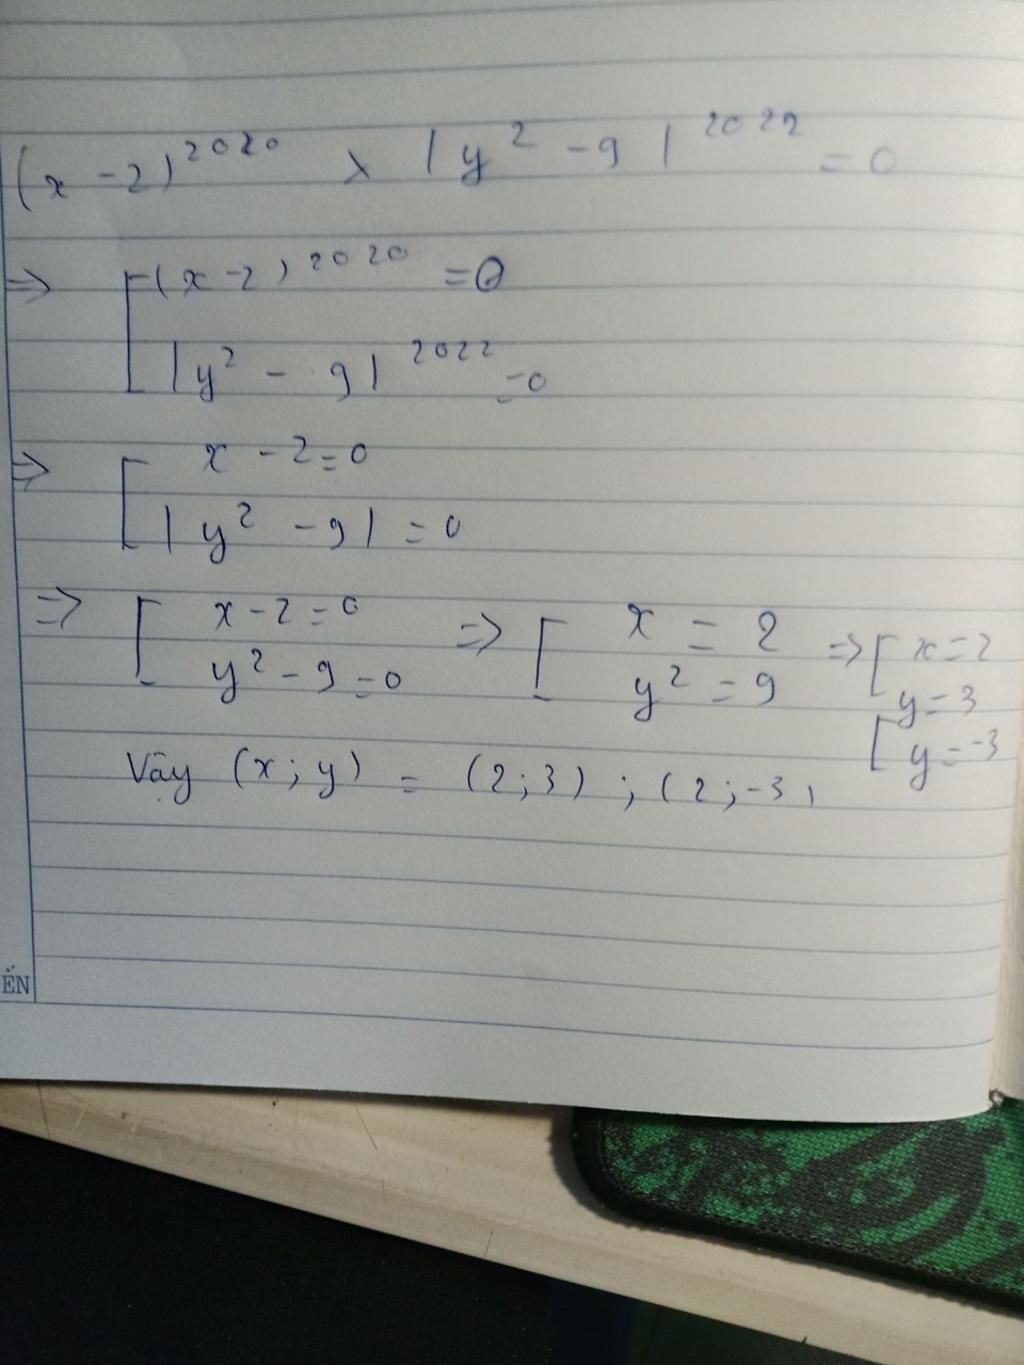 (x - 2)²⁰²⁰ x |y² - 9|²⁰²² = 0
=> [ (x - 2)²⁰²⁰ = 0
|y² - 9|²⁰²² = 0
=> [ x - 2 = 0
|y² - 9| = 0
=> [ x - 2 = 0 => [ x = 2 => [ x = 2
y² - 9 = 0 y² = 9 y = 3
[ y = -3
Vậy (x; y) = (2; 3) ; (2; -3)
ẾN